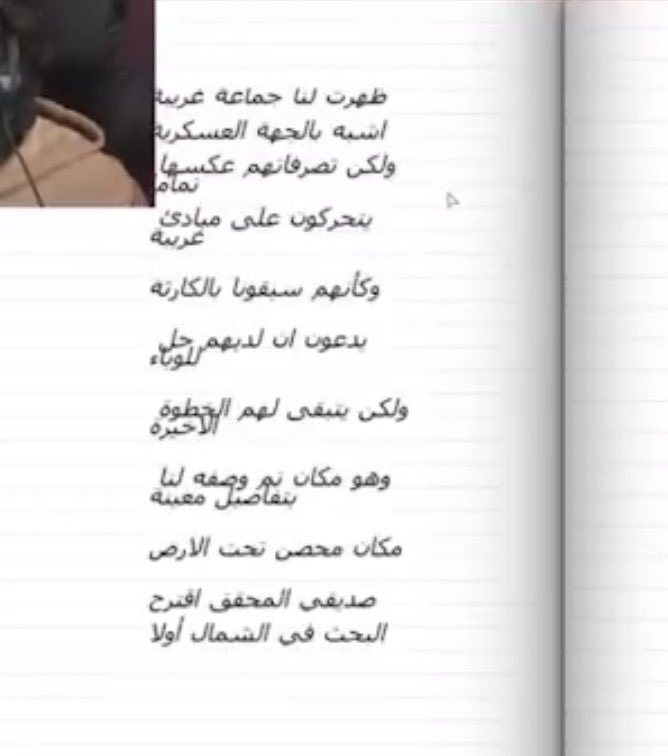 ظهرت لنا جماعة غريبة
اشبه بالجهة العسكرية
ولكن تصرفاتهم عكسها
تمام
يتحركون على مبادئ
غريبة
وكأنهم سبقونا بالكارثة
يدعون ان لديهم حل
للوباء
ولكن يتبقى لهم الخطوة
الاخيرة
وهو مكان تم وصفه لنا
بتفاصيل معينة
مكان محصن تحت الارض
صديقي المحقق اقترح
البحث في الشمال أولا